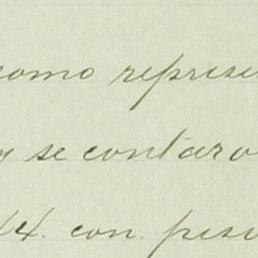 como represe
y se contaro
14. con. pesu